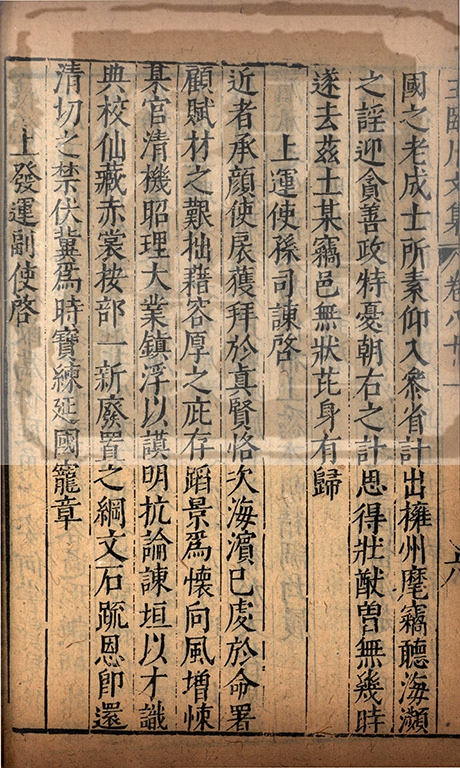 王臨川文集 卷八十一 六
國之老成士所素仰入叅省計出擁州麾竊聽海瀕
之謡迎貪善政特憂朝右之計思得壯猷曽無幾時
遂去兹土某竊邑無狀芘身有歸
上運使孫司諫啓
近者承顔使展獲拜於真賢恪次海濵已虔於命署
顧賦材之艱拙藉容厚之庇存蹈景爲懷向風增悚
某官清機昭理大業鎮浮以謨明抗論諫垣以才識
典校仙藏赤裳按部一新廢置之綱文石䟽恩卽還
清切之禁伏冀爲時寶練延國寵章
上發運副使啓